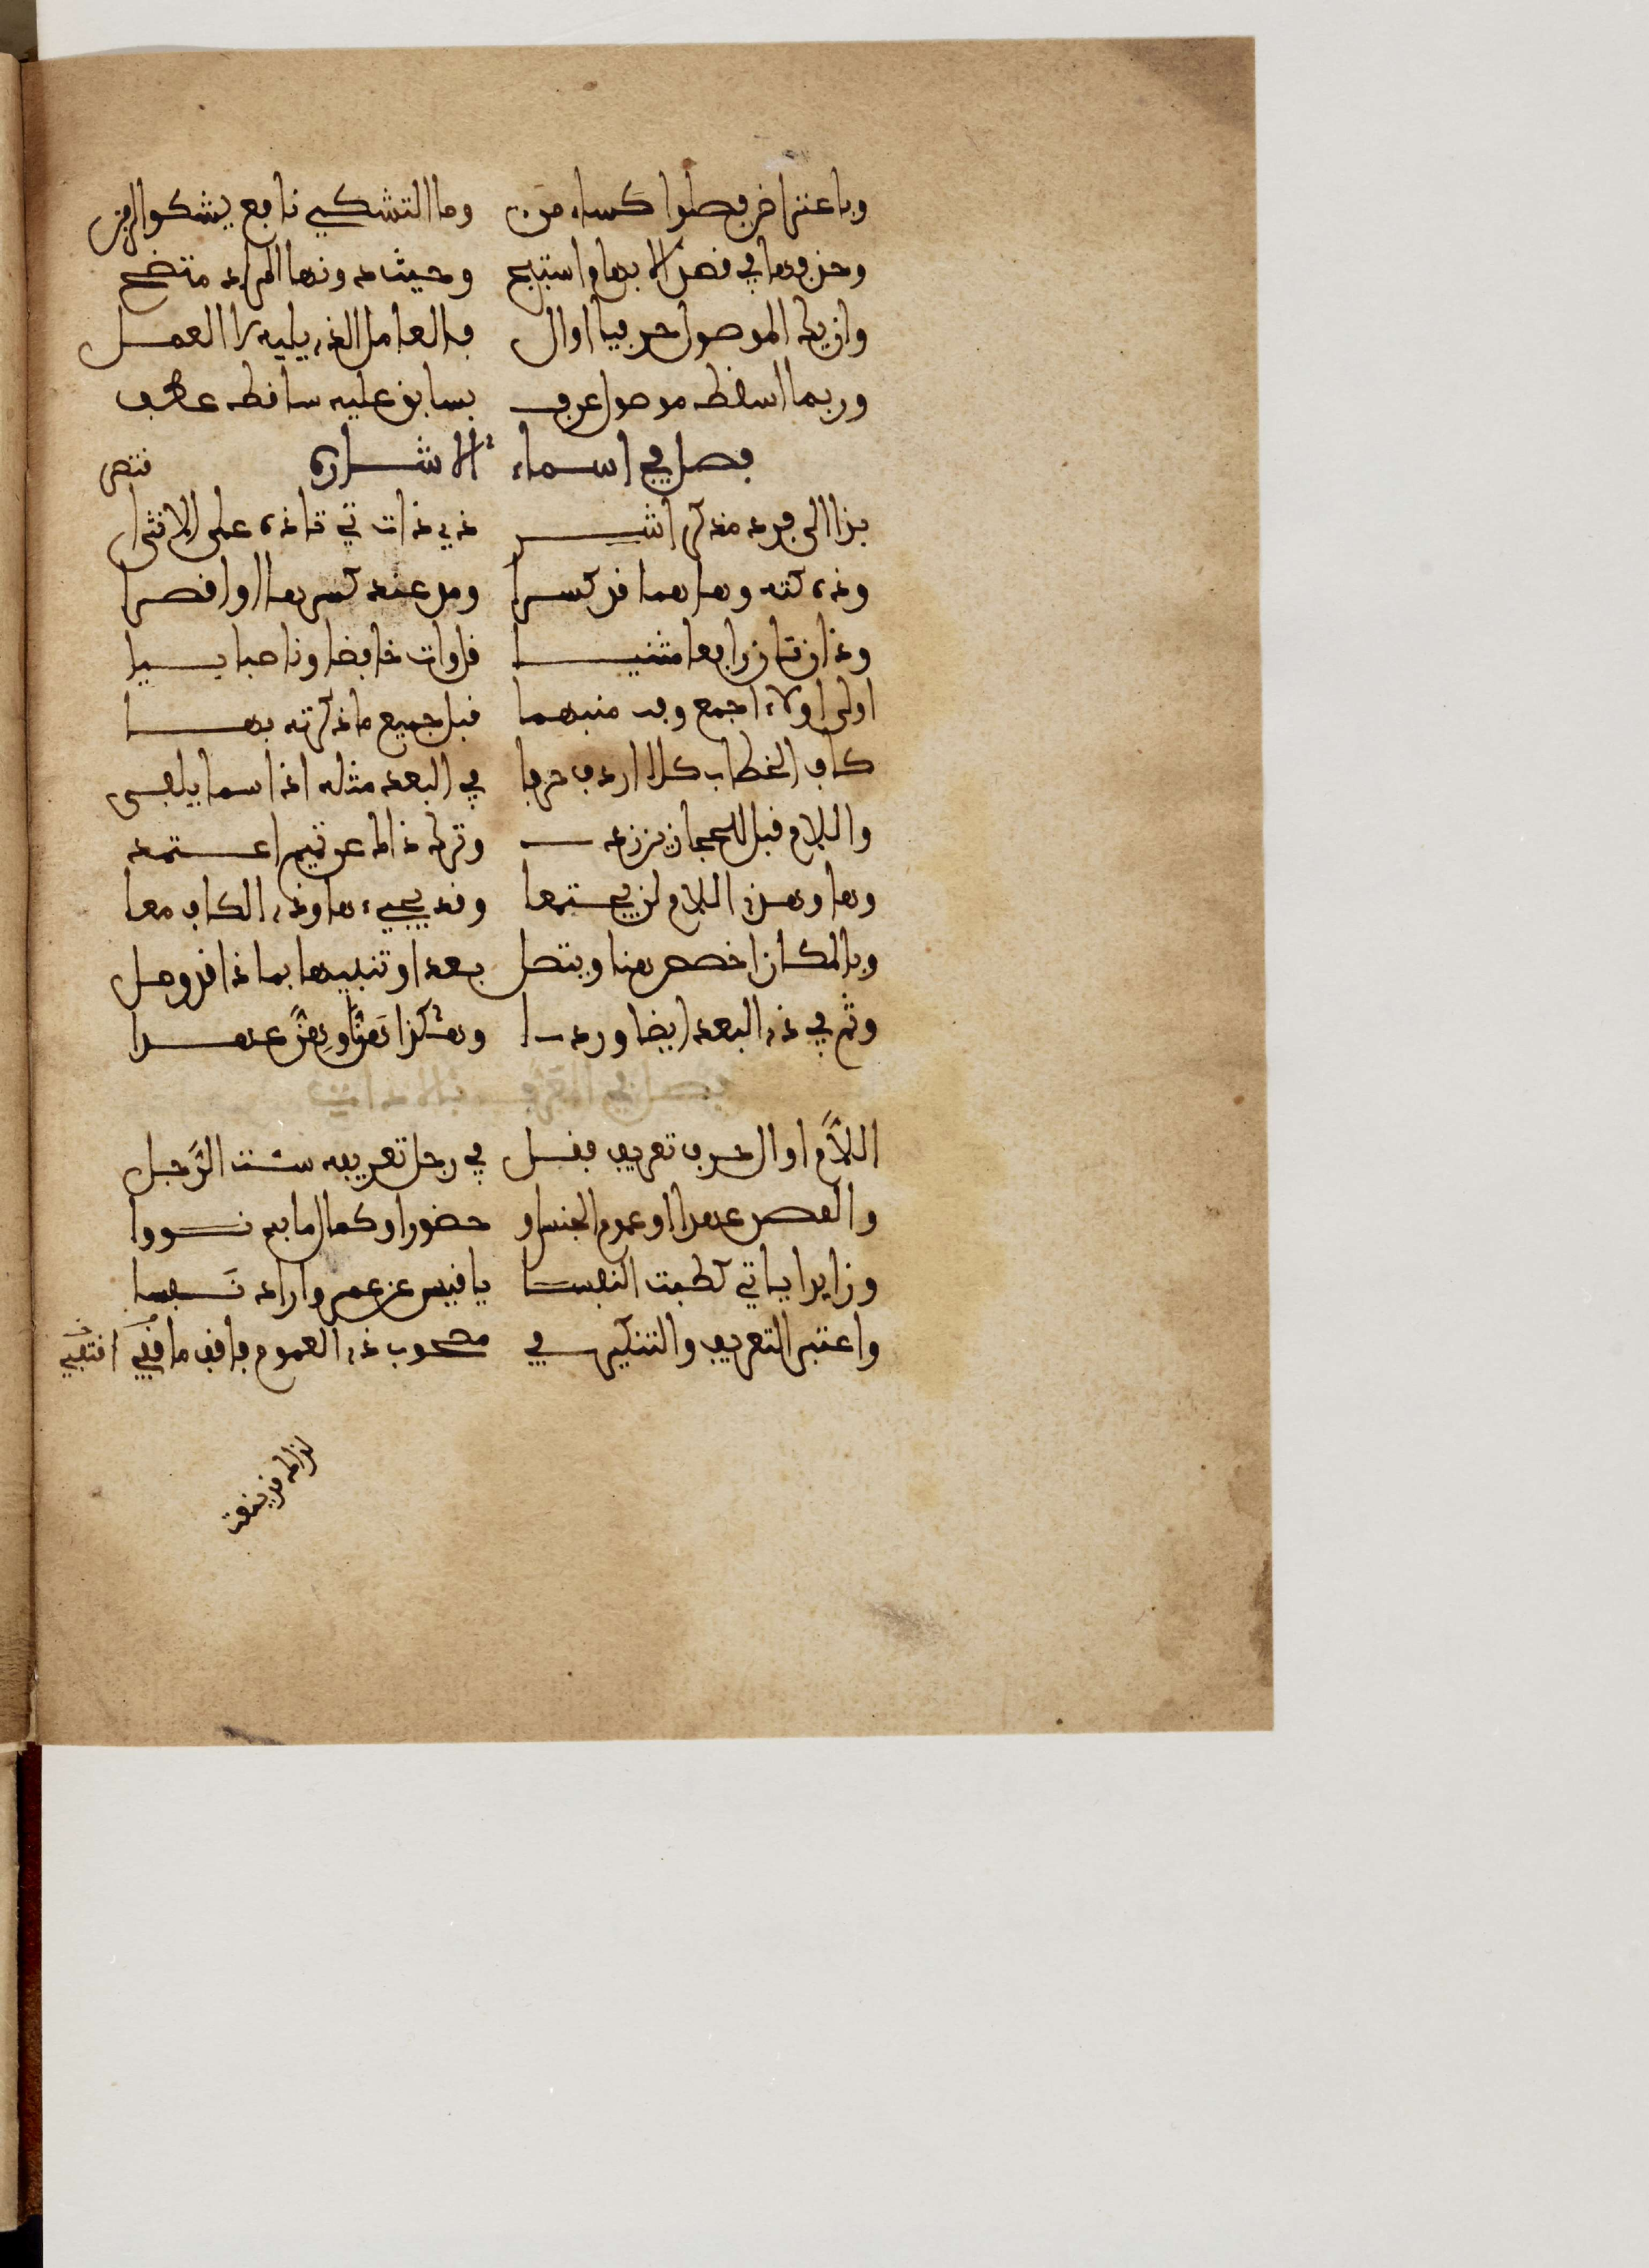 وباعتراض فصلوا كساء من وما التشكي نافع يشكوا الزمن
وحذفها في قصد الابهام استبح وحيث دونها المراد متضح
وان يك الموصول حرفيا او ال فالعامل الذي يليه لا العمل
وربما اسقط موصول عرف بسابق عليه ساقط عطف
فصل في اسماء الاشارة
بذا الى فرد مذكر اشر ذي ذات تي تا ذه على الانثى اقتصر
وذه كته وهاهما قد كسرا ومد عند كسر ها او اقصرا
وذان تان رافعا مثنيا قل وات خافضا وناصبا بيا
اولى اولاء اجمع وفه منبهما قبل جميع ما ذكرته بها
كاف الخطاب كلا اردف حرفا في البعد مثله اذ اسما يلفى
واللام قبل للحجازي زد وترك ذا لك عن تميم اعتمد
وها وهذي اللام لن يجتمعا وقد يجيء ها وذي الكاف معا
وبالمكان اخصص هنا ويتصل بعدا وتنبيها بما ذا قد وصل
وثم في ذي البعد ايضا وردا وهكذا هنا وهنا عهدا
فصل في المعرف بالاداة
اللام او ال حرف تعريف فقل في رجل تعريفه شئت الرجل
والقصد عهدا او عموم الجنس او حضورا او كمال ما به نووا
وزايدا ياتي كطبت النفسا يا قيس عن عمرو اراد نفسا
واعتبر التعريف والتنكير في مصحوب ذي العموم فاقف ما قفي اقتفي